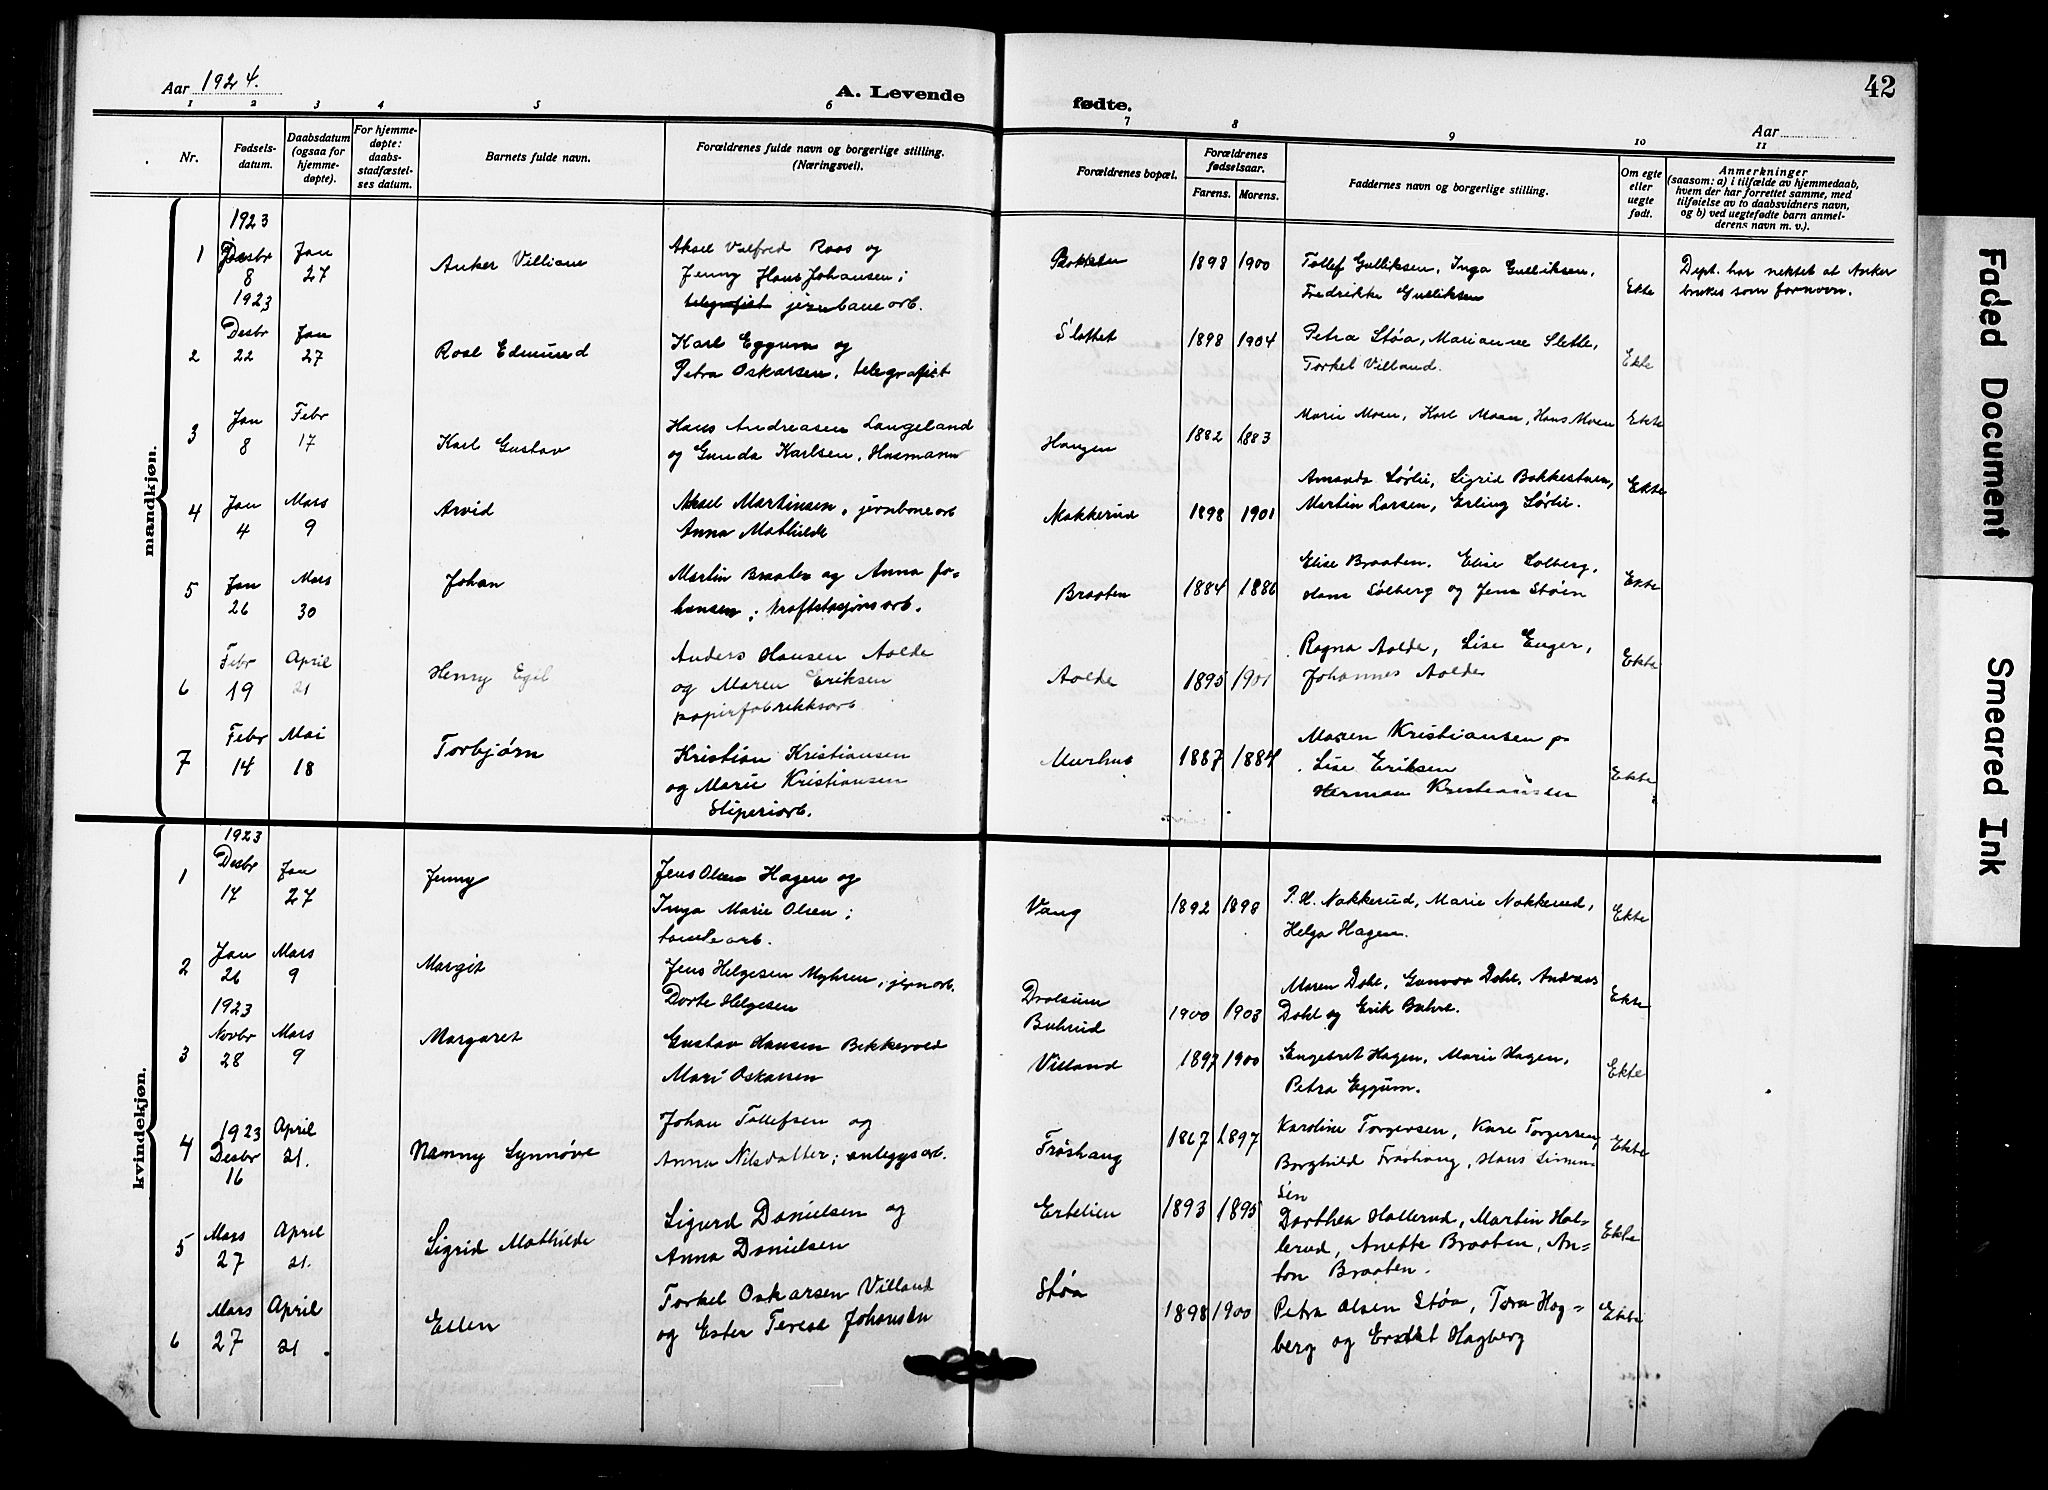 Aar 1924.
A. Levende
fødte.
42
Aar
1 2 3 4 5 6 7 8 9 10 11
Nr.
Fødselsdatum.
Daabsdatum (ogsaa for hjemmedøpte).
For hjemmedøpte: daabsstadfæstelses datum.
Barnets fulde navn.
Forældrenes fulde navn og borgerlige stilling. (Næringsvei).
Forældrenes bopæl.
Forældrenes fødselsaar.
Farens. Morens.
Faddernes navn og borgerlige stilling.
Om egte eller uegte født.
Anmerkninger
(saasom: a) i tilfælde av hjemmedaab,
hvem der har forrettet samme, med
tilføielse av to daabsvidners navn,
og b) ved uegtefødte barn anmelderens navn m. v.).
mandkjøn.
1923
1 Desbr 8 Jan 27 Anker Villiam
Aksel Valfred Roos og
Jenny Hans Johansen;
telegrafist jernbanearb.
Bakken 1898 1900
Tollef Gulliksen, Inga Gulliksen,
Fredrikke Gulliksen
Ekte
Dept. har nektet at Anker
brukes som fornavn.
1923
2 Desbr 22 Jan 27 Roal Edmund
Karl Eggum og
Petra Oskarsen, telegrafist
Slottet 1898 1904
Petra Støa, Marianne Slette,
Torkel Villand.
Ekte
3 Jan 8 Febr 17 Karl Gustav
Hans Andreasen Langeland
og Gunda Karlsen, Husmann
Haugen 1882 1883
Marie Moen, Karl Moen, Hans Moen
Ekte
4 Jan 4 Mars 9 Arvid
Aksel Martinsen, jernbanearb
Anna Mathilde
Nakkerud 1898 1901
Amanda Sørlie, Sigrid Bakkestuen,
Martin Larsen, Erling Sørlie.
Ekte
5 Jan 26 Mars 30 Johan
Martin Braaten og Anna Jo-
hansen; kraftstasjonsarb.
Braaten 1884 1886
Elise Braaten, Elise Solberg,
Hans Solberg og Jens Støen
Ekte
6 Febr 19 April 21 Henry Egil
Anders Hansen Aalde
og Maren Eriksen
papirfabrikksarb
Aalde 1895 1901
Ragna Aalde, Lise Enger,
Johannes Aalde
Ekte
7 Febr 14 Mai 18 Torbjørn
Kristian Kristiansen
og Marie Kristiansen
Sliperiarb.
Murhus 1887 1884
Maren Kristiansen
Lise Eriksen
Herman Kristiansen
Ekte
kvindekjøn.
1923
1 Desbr 17 Jan 27 Jenny
Jens Olsen Hagen og
Inga Marie Olsen;
tomtearb.
Vang 1892 1898
P. H. Nakkerud, Marie Nakkerud,
Helga Hagen.
Ekte
2 Jan 26 Mars 9 Margit
Jens Helgesen Myhren, jernarb.
Dorte Helgesen
Dralsum
Buhrud 1900 1903
Maren Dahl, Gunvor Dahl, Andreas
Dahl og Erik Buhre.
Ekte
1923
3 Novbr 28 Mars 9 Margaret
Gustav Hansen Bekkevold
Mari Oskarsen
Villand 1897 1900
Engebret Hagen, Marie Hagen,
Petra Eggum.
Ekte
1923
4 Desbr 16 April 21. Nanny Synnøve
Johan Tollefsen og
Anna Nilsdatter; anleggsarb.
Frøshaug 1867 1897
Karoline Torgersen, Kare Torgersen,
Borghild Frøshaug, Hans Simen-
sen
Ekte
5 Mars 27 April 21. Sigrid Mathilde
Sigurd Danielsen og
Anna Danielsen
Ertelien 1893 1895
Dorthea Hallerud, Martin Hal-
lerud, Anette Braaten, An-
ton Braaten.
Ekte
6 Mars 27 April 21. Ellen
Torkel Oskarsen Villand
og Ester Terese Johansen
Støa 1898 1900
Petra Olsen Støa, Tora Hag-
berg og Ernst Hagberg
Ekte
Faded Document
Smeared Ink